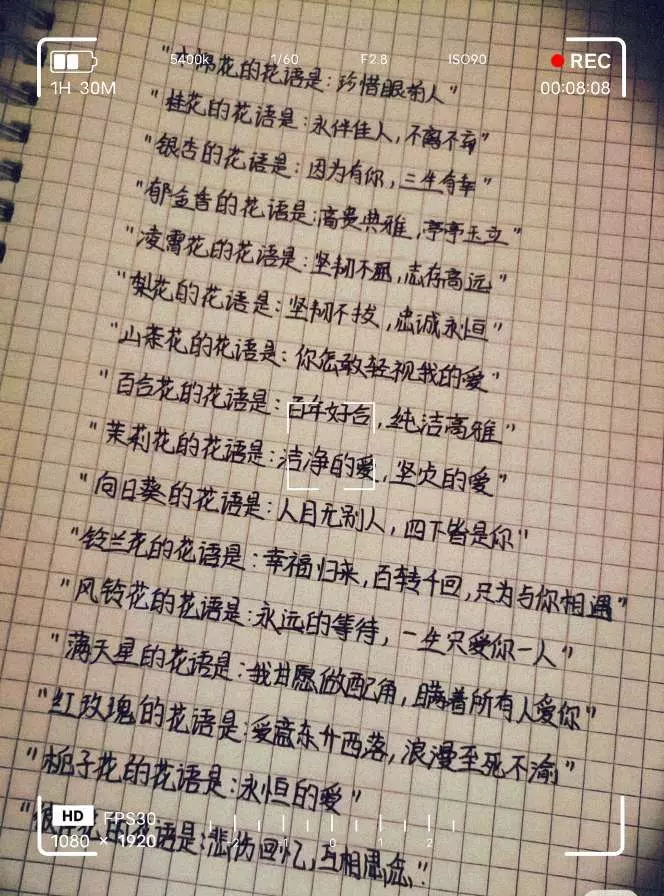 5400k 1/60 F2.8 ISO90 REC
1H 30M 00:08:08
"木棉花的花语是:珍惜眼前人"
"桂花的花语是:永伴佳人,不离不弃"
"银杏的花语是:因为有你,三生有幸"
"郁金香的花语是:高贵典雅,亭亭玉立"
"凌霄花的花语是:坚韧不屈,志存高远"
"梨花的花语是:坚韧不拔,忠诚永恒"
"山茶花的花语是:你怎敢轻视我的爱"
"百合花的花语是:百年好合,纯洁高雅"
"茉莉花的花语是:洁净的爱,坚贞的爱"
"向日葵的花语是:入目无别人,四下皆是你"
"铃兰花的花语是:幸福归来,百转千回,只为与你相遇"
"风铃花的花语是:永远的等待,一生只爱你一人"
"满天星的花语是:我甘愿做配角,瞒着所有人爱你"
"红玫瑰的花语是:爱意东升西落,浪漫至死不渝"
"栀子花的花语是:永恒的爱"
"彼岸花的花语是:悲伤回忆,互相思念"
HD FPS30
1080 × 1920
2 1 0 1 2